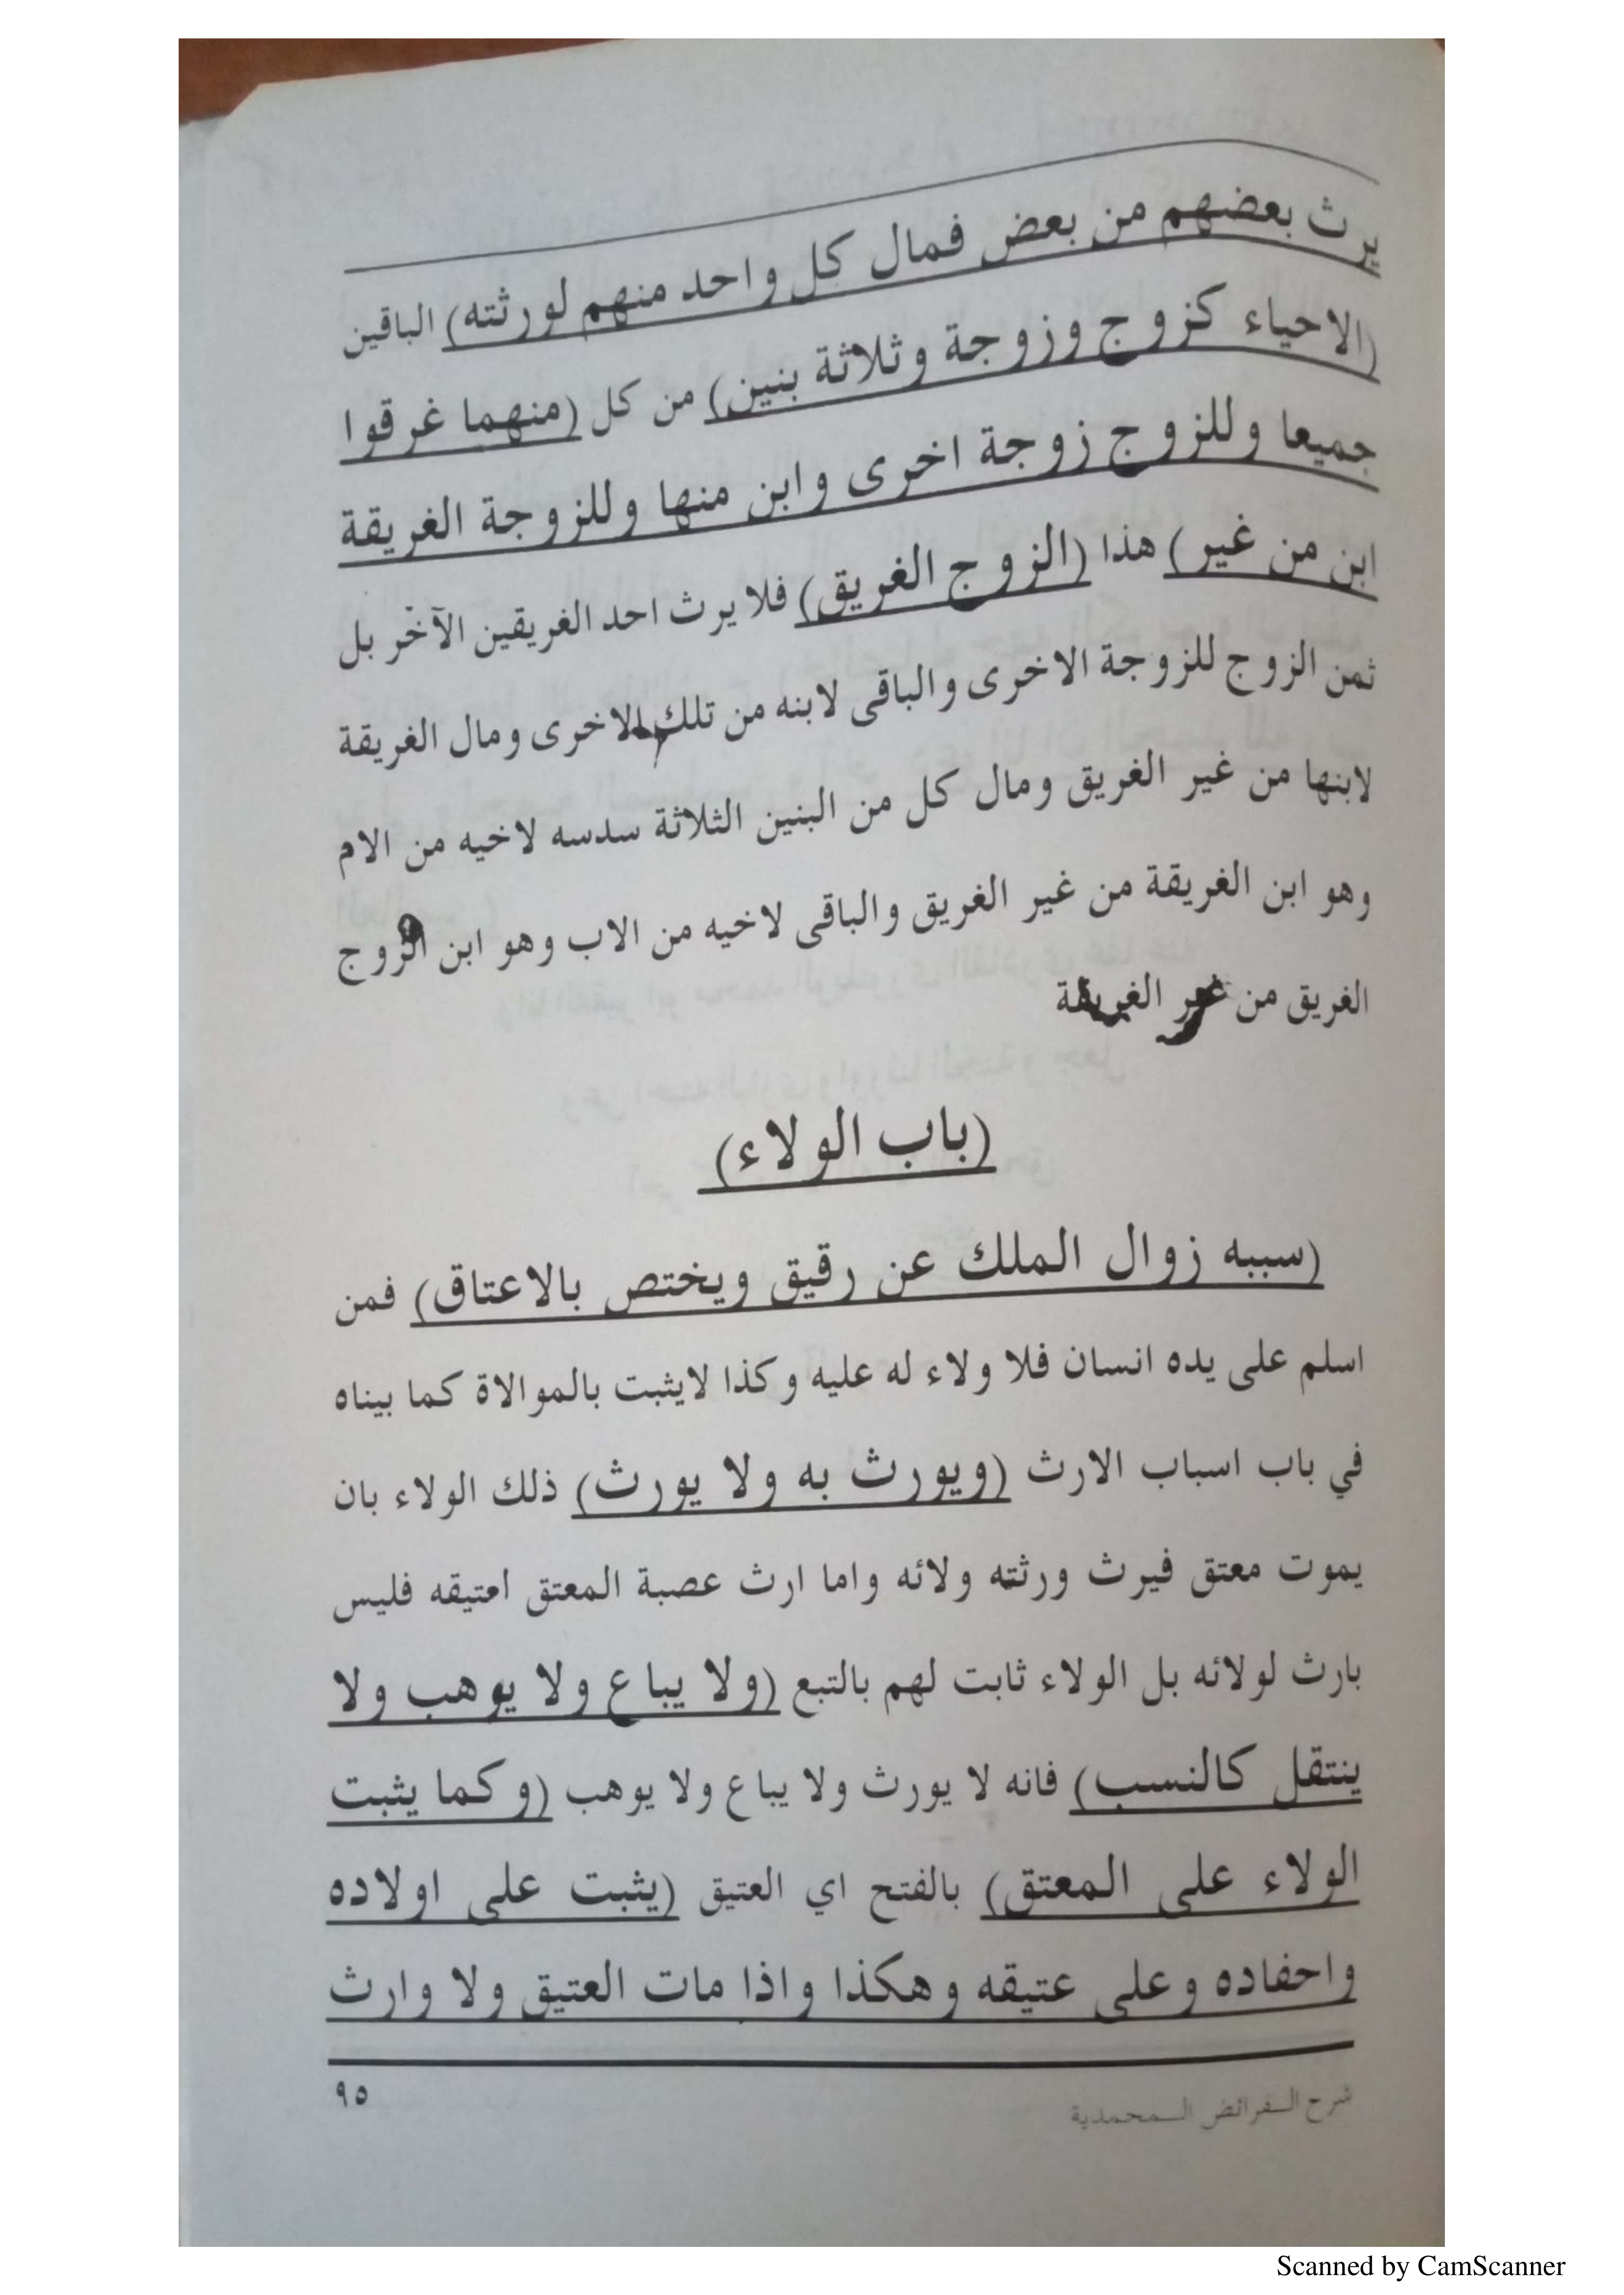 يرث بعضهم من بعض فمال كل واحد منهم لورثته) الباقين
(الاحياء كزوج وزوجة وثلاثة بنين) من كل (منهما غرقوا
جميعا وللزوج زوجة اخرى وابن منها وللزوجة الغريقة
ابن من غير) هذا (الزوج الغريق) فلا يرث احد الغريقين الآخر بل
ثمن الزوج للزوجة الاخرى والباقى لابنه من تلك الاخرى ومال الغريقة
لابنها من غير الغريق ومال كل من البنين الثلاثة سدسه لاخيه من الام
وهو ابن الغريقة من غير الغريق والباقى لاخيه من الاب وهو ابن الزوج
الغريق من غير الغريقة
(باب الولاء)
(سببه زوال الملك عن رقيق ويختص بالاعتاق) فمن
اسلم على يده انسان فلا ولاء له عليه وكذا لايثبت بالموالاة كما بيناه
في باب اسباب الارث (ويورث به ولا يورث) ذلك الولاء بان
يموت معتق فيرث ورثته ولائه واما ارث عصبة المعتق اعتيقه فليس
بارث لولائه بل الولاء ثابت لهم بالتبع (ولا يباع ولا يوهب ولا
ينتقل كالنسب) فانه لا يورث ولا يباع ولا يوهب (وكما يثبت
الولاء على المعتق) بالفتح اي العتيق (يثبت على اولاده
واحفاده وعلى عتيقه وهكذا واذا مات العتيق ولا وارث
شرح الفرائض المحمدية ٩٥
Scanned by CamScanner